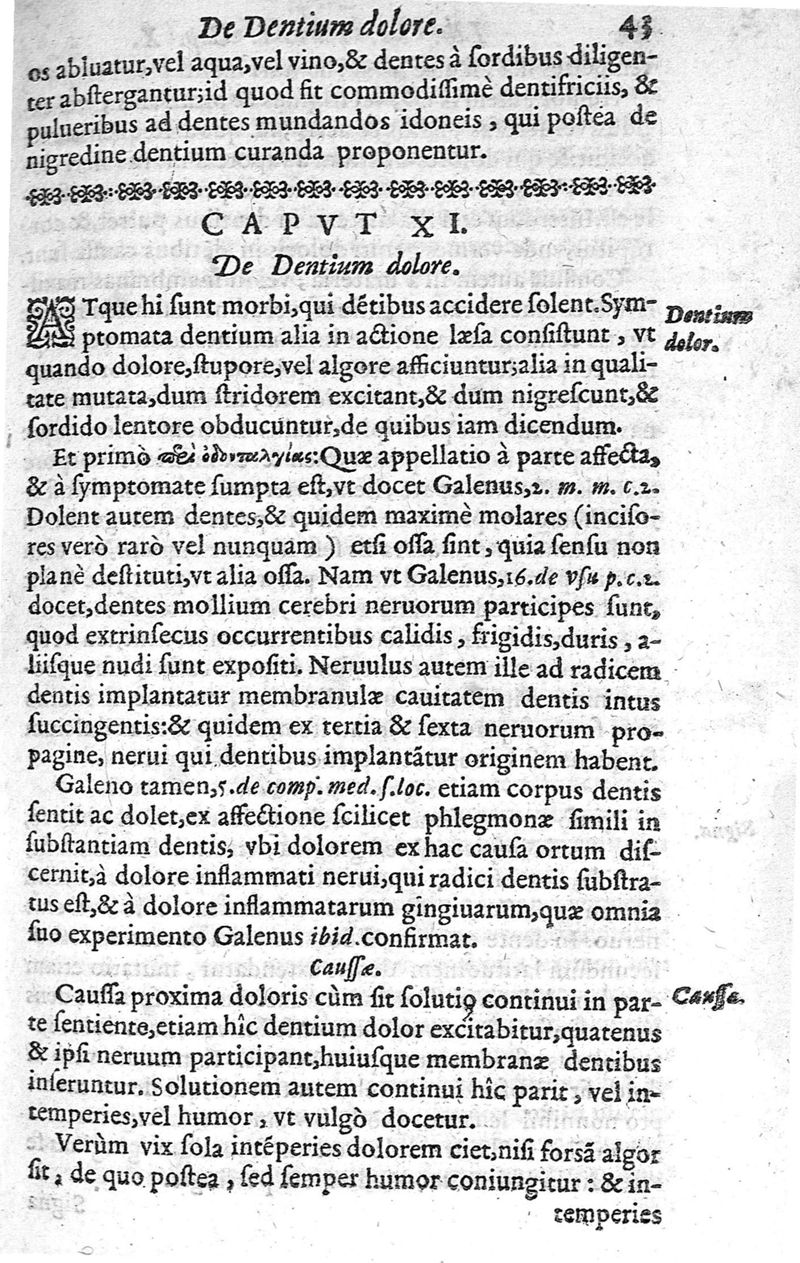 De Dentium dolore. 43
os abluatur,vel aqua,vel vino,& dentes à ſordibus diligen-
ter abſtergantur;id quod fit commodiſſimè dentifriciis, &
pulueribus ad dentes mundandos idoneis , qui poſtea de
nigredine dentium curanda proponentur.
CAPVT XI.
De Dentium dolore.
ATque hi ſunt morbi,qui détibus accidere ſolent.Sym-
ptomata dentium alia in actione læſa conſiſtunt , vt
Dentium
dolor.
quando dolore,ſtupore,vel algore afficiuntur;alia in quali-
tate mutata,dum ſtridorem excitant,& dum nigreſcunt,&
ſordido lentore obducuntur,de quibus iam dicendum.
Et primò περὶ ὀδονταλγίας:Quæ appellatio à parte affecta,
& à ſymptomate ſumpta eſt,vt docet Galenus,2. m. m. c.2.
Dolent autem dentes,& quidem maximè molares (inciſo-
res verò rarò vel nunquam ) etſi oſſa ſint , quia ſenſu non
planè deſtituti,vt alia oſſa. Nam vt Galenus,16.de vſu p.c.2.
docet,dentes mollium cerebri neruorum participes ſunt,
quod extrinſecus occurrentibus calidis , frigidis,duris , a-
liiſque nudi ſunt expoſiti. Neruulus autem ille ad radicem
dentis implantatur membranulæ cauitatem dentis intus
ſuccingentis:& quidem ex tertia & ſexta neruorum pro-
pagine, nerui qui dentibus implantãtur originem habent.
Galeno tamen,5.de comp. med. ſ.loc. etiam corpus dentis
ſentit ac dolet,ex affectione ſcilicet phlegmonæ ſimili in
ſubſtantiam dentis, vbi dolorem ex hac cauſa ortum diſ-
cernit,à dolore inflammati nerui,qui radici dentis ſubſtra-
tus eſt,& à dolore inflammatarum gingiuarum,quæ omnia
ſuo experimento Galenus ibid.confirmat.
Cauſſæ.
Cauſſa proxima doloris cùm ſit ſolutio continui in par-
Cauſſa.
te ſentiente,etiam hîc dentium dolor excitabitur,quatenus
& ipſi neruum participant,huiuſque membranæ dentibus
inſeruntur. Solutionem autem continui hîc parit , vel in-
temperies,vel humor , vt vulgò docetur.
Verùm vix ſola intéperies dolorem ciet,niſi forsã algor
ſit, de quo poſtea , ſed ſemper humor coniungitur : & in-
temperies